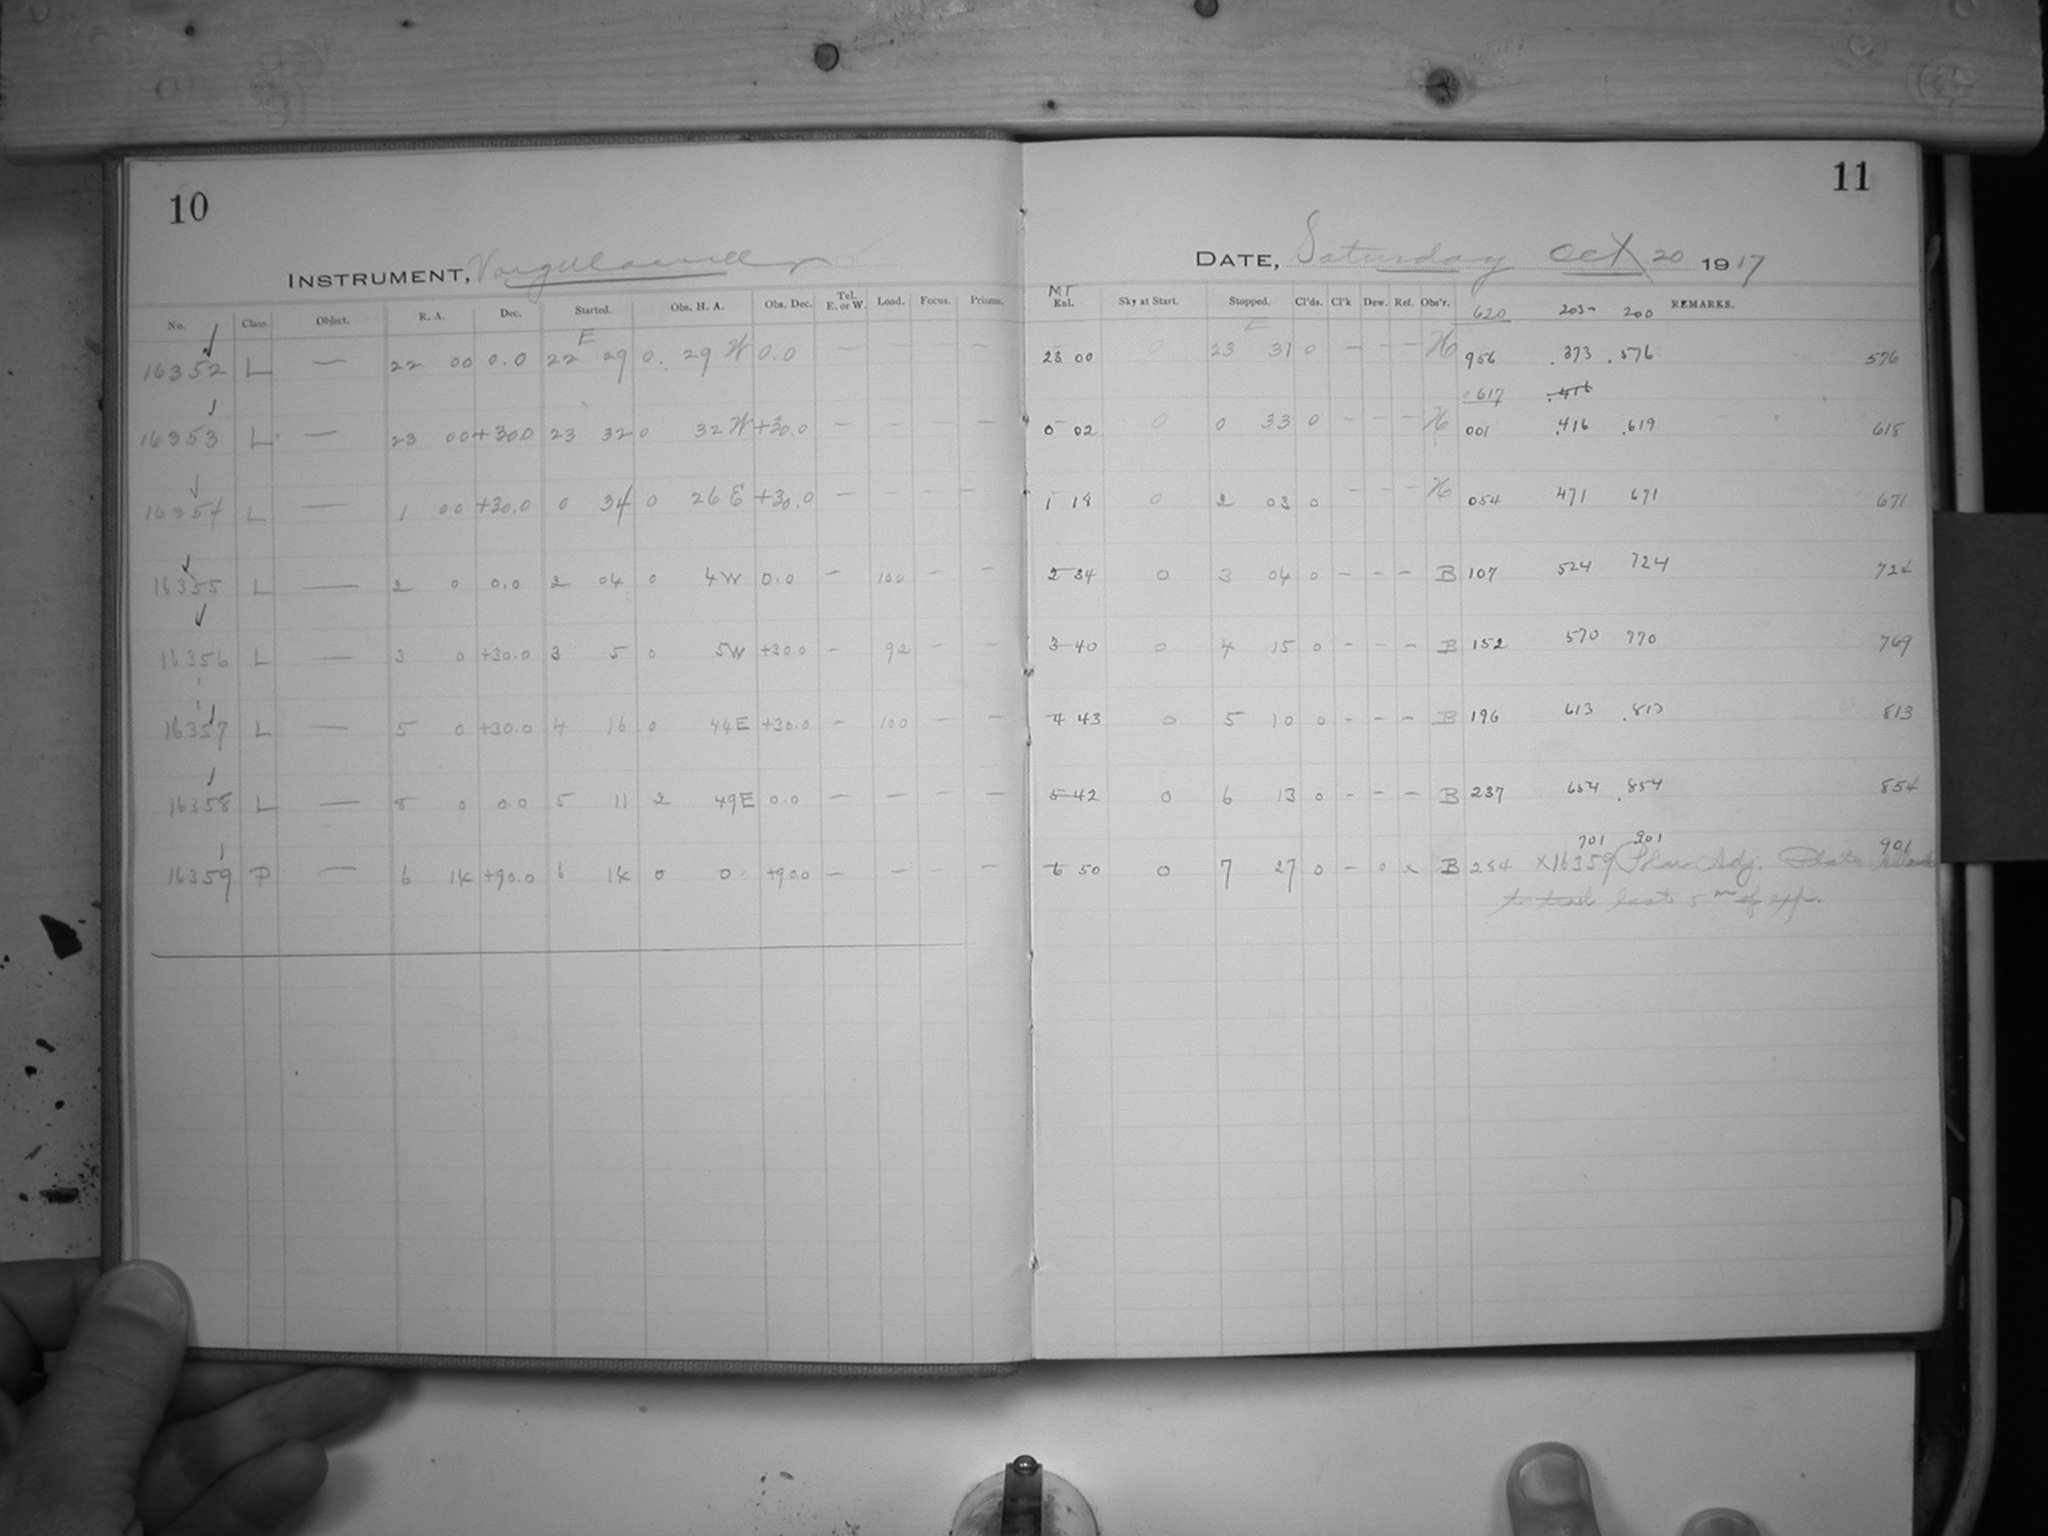 10
INSTRUMENT,
No. Class. Object. R. A. Dec. Started. Obs. H. A. Obs. Dec. Tel. E. or W. Load. Focus. Prism.
E
16352 L — 22 00 0.0 22 29 0. 29 W 0.0 — — — —
16353 L — 23 00 +30.0 23 32 0 32 W +30.0 — — — —
16354 L — 1 00 +30.0 0 34 0 26 E +30.0 — — — —
16355 L — 2 0 0.0 2 04 0 4 W 0.0 — 100 — —
16356 L — 3 0 +30.0 3 5 0 5 W +30.0 — 92 — —
16357 L — 5 0 +30.0 4 16 0 44 E +30.0 — 100 — —
16358 L — 8 0 0.0 5 11 2 49 E 0.0 — — — —
16359 P — 6 14 +90.0 6 14 0 0 +90.0 — — — —
11
DATE, Saturday Oct 20 1917
MT
Enl. Sky at Start. Stopped. Cl'ds. Cl'k Dew. Ref. Obs'r. REMARKS.
E 620 203- 200
23 00 0 23 31 0 — — — H 956 .373 .576 576
.617 .416
0 02 0 0 33 0 — — — H 001 .416 .619 618
1 18 0 2 03 0 — — — H 054 471 671 671
2 34 0 3 04 0 — — — B 107 524 724 724
3 40 0 4 15 0 — — — B 152 570 770 769
4 43 0 5 10 0 — — — B 196 613 .813 813
5 42 0 6 13 0 — — — B 237 654 .854 854
701 .901 901
6 50 0 7 27 0 — 0 x B 284 x16359 Polar Adj. Plate
to trail last 5 m of exp.